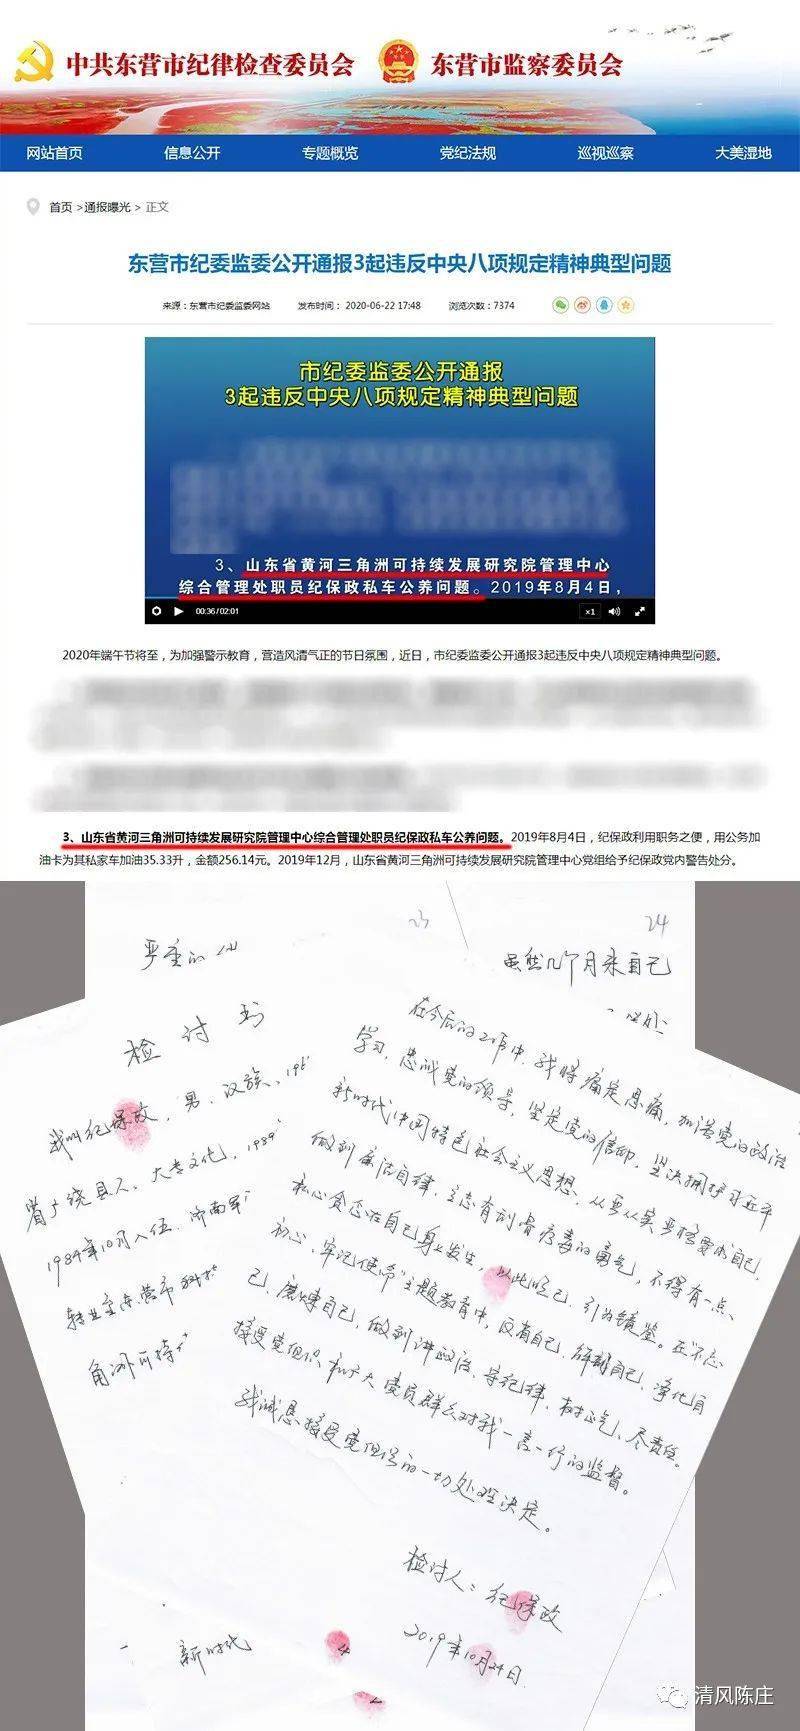 中共东营市纪律检查委员会
东营市监察委员会
网站首页 信息公开 专题概览 党纪法规 巡视巡察 大美湿地
首页 >通报曝光 > 正文
东营市纪委监委公开通报3起违反中央八项规定精神典型问题
来源：东营市纪委监委网站 发布时间： 2020-06-22 17:48 浏览次数：7374
市纪委监委公开通报
3起违反中央八项规定精神典型问题
3、山东省黄河三角洲可持续发展研究院管理中心
综合管理处职员纪保政私车公养问题。2019年8月4日，
00:36/02:01
x1
2020年端午节将至，为加强警示教育，营造风清气正的节日氛围，近日，市纪委监委公开通报3起违反中央八项规定精神典型问题。
3、山东省黄河三角洲可持续发展研究院管理中心综合管理处职员纪保政私车公养问题。2019年8月4日，纪保政利用职务之便，用公务加
油卡为其私家车加油35.33升，金额256.14元。2019年12月，山东省黄河三角洲可持续发展研究院管理中心党组给予纪保政党内警告处分。
23
严重的
24
虽然几个月来自己
检讨书
我叫纪保政，男、汉族、
省广饶县人、大专文化，1989
1984年10月入伍、济南军
转业至东营市科技
角洲可持
在今后的工作中，我将痛定思痛，加强党的政治
学习，忠诚党的领导，坚定党的信仰，坚决拥护习近平
新时代中国特色社会主义思想、从严从实严格要求自己，
做到廉洁自律，立志有刮骨疗毒的勇气，不得有一点、
私心贪念在自己身上发生，以此吃己、引为镜鉴。在"不忘
初心、牢记使命"主题教育中，反省自己、解剖自己、净化自
己、磨炼自己，做到讲政治、守纪律、树正气、尽责任。
接受党组织和广大党员群众对我一言一行的监督。
我诚恳接受党组织的一切处理决定。
检讨人：纪保政
2019年10月24日
新时代
清风陈庄